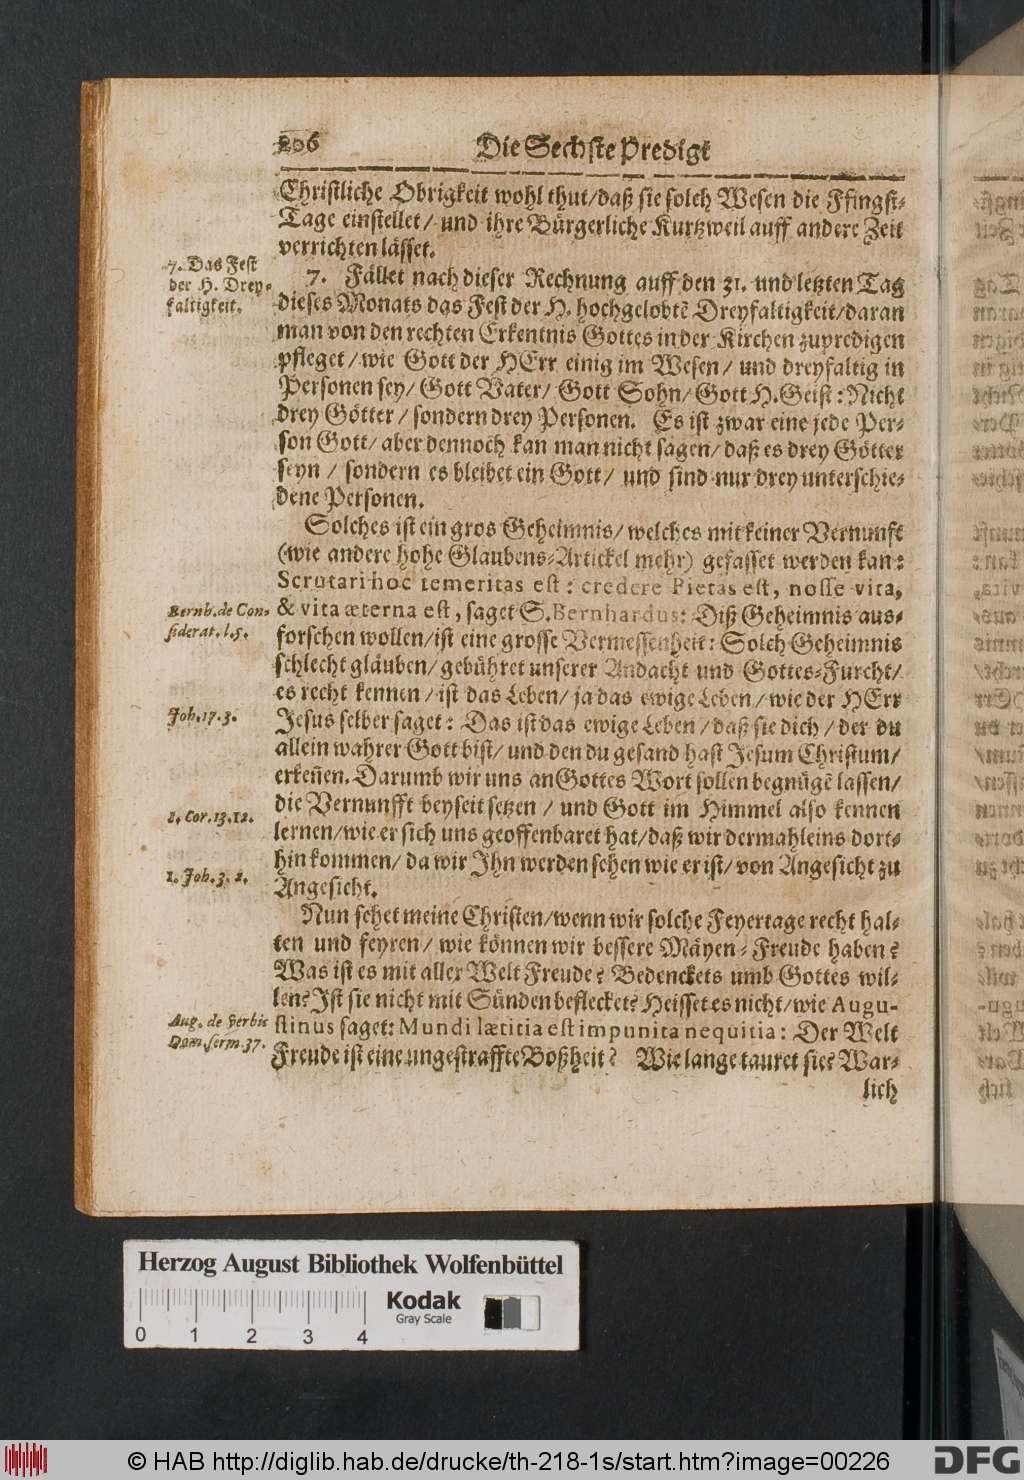 206
Die Sechste Predigt
Christliche Obrigkeit wohl thut/daß sie solch Wesen die Pfingst-
Tage einstellet/ und ihre Bürgerliche Kurtzweil auff andere Zeit
verrichten lässet.
7. Das Fest
der H. Drey-
faltigkeit.
7. Fället nach dieser Rechnung auff den 31. und letzten Tag
dieses Monats das Fest der H. hochgelobtẽ Dreyfaltigkeit/daran
man von den rechten Erkentnis Gottes in der Kirchen zupredigen
pfleget/wie Gott der HErr einig im Wesen/ und dreyfaltig in
Personen sey/ Gott Vater/ Gott Sohn/ Gott H. Geist: Nicht
drey Götter/ sondern drey Personen. Es ist zwar eine jede Per-
son Gott/ aber dennoch kan man nicht sagen/ daß es drey Götter
seyn / sondern es bleibet ein Gott/ und sind nur drey unterschie-
dene Personen.
Solches ist ein gros Geheimnis/ welches mit keiner Vernunft
(wie andere hohe Glaubens-Artickel mehr) gefasset werden kan:
Scrutari hoc temeritas est: credere Pietas est, nosse vita,
Bernh. de Con-
siderat. l. 5.
& vita æterna est, saget S. Bernhardus: Diß Geheimnis aus-
forschen wollen/ist eine grosse Vermessenheit: Solch Geheimnis
schlecht gläuben/ gebühret unserer Andacht und Gottes-Furcht/
es recht kennen / ist das Leben/ ja das ewige Leben / wie der HErr
Joh. 17. 3.
Jesus selber saget: Das ist das ewige Leben / daß sie dich / der du
allein wahrer Gott bist/ und den du gesand hast Jesum Christum/
erkeñen. Darumb wir uns an Gottes Wort sollen begnügẽ lassen/
die Vernunfft beyseit setzen / und Gott im Himmel also kennen
1. Cor. 13. 12.
lernen/wie er sich uns geoffenbaret hat/daß wir dermahleins dort-
hin kommen/ da wir Ihn werden sehen wie er ist/ von Angesicht zu
1. Joh. 3. 2.
Angesicht.
Nun sehet meine Christen/wenn wir solche Feyertage recht hal-
ten und feyren/ wie können wir bessere Mäyen-Freude haben?
Was ist es mit aller Welt Freude? Bedenckets umb Gottes wil-
len? Ist sie nicht mit Sünden beflecket? Heisset es nicht/wie Augu-
Aug. de verbis
Dom. serm. 37.
stinus saget: Mundi lætitia est impunita nequitia: Der Welt
Freude ist eine ungestraffte Boßheit? Wie lange tauret sie? War-
lich
Herzog August Bibliothek Wolfenbüttel
0 1 2 3 4
Kodak
Gray Scale
© HAB http://diglib.hab.de/drucke/th-218-1s/start.htm?image=00226
DFG